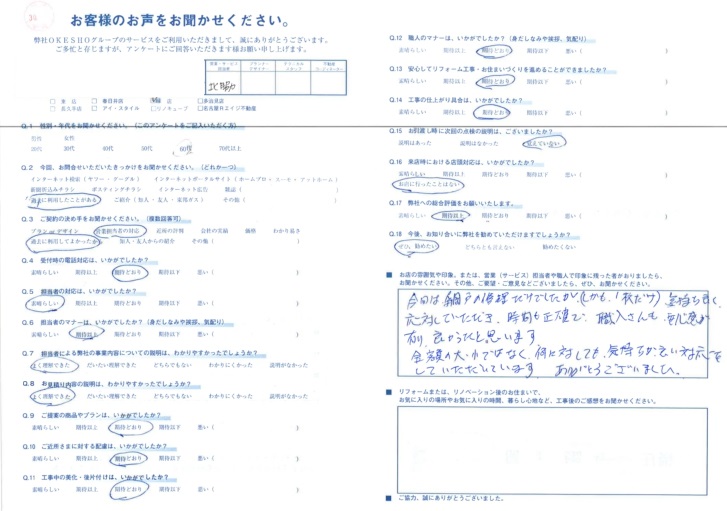 お客様のお声をお聞かせください。
弊社OKESHOグループのサービスをご利用いただきまして、誠にありがとうございます。
ご多忙と存じますが、アンケートにご回答いただきます様お願い申し上げます。
営業・サービス担当者
プランナー デザイナー
テクニカルスタッフ
不動産
□ 本店 □ 春日井店 店 □ 多治見店
□ 名古屋エイジ不動産
□ アイ・スタイル □ リノキューブ
Q.1 性別・年代をお聞かせください。(このアンケートをご記入いただく方)
男性 女性
20代 30代 40代 50代 60代 70代以上
Q.2 今回、お問合せいただいたきっかけをお聞かせください。(どれか一つ)
インターネット検索(ヤフー・グーグル) インターネットポータルサイト(ホームプロ・スーモ・アットホーム)
新聞折込みチラシ ポスティングチラシ インターネット広告 雑誌( )
過去に利用したことがある ご紹介(知人・友人・家族など) その他( )
Q.3 ご契約の決め手をお聞かせください。(複数回答可)
プランやデザイン 営業担当者の対応 近所の評判 会社の実績 価格 わかり易さ
過去に利用してよかったから 知人・友人からの紹介 その他( )
Q.4 受付時の電話対応は、いかがでしたか?
素晴らしい 期待以上 期待どおり 期待以下 悪い( )
Q.5 担当者の対応は、いかがでしたか?
素晴らしい 期待以上 期待どおり 期待以下 悪い( )
Q.6 担当者のマナーは、いかがでしたか?(身だしなみや挨拶、気配り)
素晴らしい 期待以上 期待どおり 期待以下 悪い( )
Q.7 担当者による弊社の事業内容についての説明は、わかりやすかったでしょうか?
よく理解できた だいたい理解できた どちらでもない わかりにくかった 説明がなかった
Q.8 お見積り内容の説明は、わかりやすかったでしょうか?
よく理解できた だいたい理解できた どちらでもない わかりにくかった 説明がなかった
Q.9 ご提案の商品やプランは、いかがでしたか?
素晴らしい 期待以上 期待どおり 期待以下 悪い( )
Q.10 ご近所さまに対する配慮は、いかがでしたか?
素晴らしい 期待以上 期待どおり 期待以下 悪い( )
Q.11 工事中の美化・後片付けは、いかがでしたか?
素晴らしい 期待以上 期待どおり 期待以下 悪い( )
Q.12 職人のマナーは、いかがでしたか?(身だしなみや挨拶、気配り)
素晴らしい 期待以上 期待どおり 期待以下 悪い( )
Q.13 安心してリフォーム工事・お住まいづくりを進めることができましたか?
素晴らしい 期待以上 期待どおり 期待以下 悪い( )
Q.14 工事の仕上がり具合は、いかがでしたか?
素晴らしい 期待以上 期待どおり 期待以下 悪い( )
Q.15 お引渡し時に次回の点検の説明は、ございましたか?
説明はあった 説明はなかった 覚えていない
Q.16 来店時における店頭対応は、いかがでしたか?
素晴らしい 期待以上 期待どおり 期待以下 悪い( )
お店に行ったことはない
Q.17 弊社への総合評価をお願いいたします。
素晴らしい 期待以上 期待どおり 期待以下 悪い( )
Q.18 今後、お知り合いに弊社を勧めていただけますでしょうか?
ぜひ、勧めたい どちらとも言えない 勧めたくない
■ お店の雰囲気や印象、または、営業(サービス)担当者や職人で印象に残った者がおりましたら、
お聞かせください。その他、ご要望・ご意見などございましたら、ぜひ、お聞かせください。
今回は網戸の修理だけでしたが(しかも、1枚だけ)気持ち良く
応対していただき、時間も正確で、職人さんも安心感が
有り、良かったと思います
金額の大小ではなく、何に対しても、気持ちが良い対応を
していただいています ありがとうございました。
■ リフォームまたは、リノベーション後のお住まいで、
お気に入りの場所やお気に入りの時間、暮らし心地など、工事後のご感想をお聞かせください。
■ ご協力、誠にありがとうございました。